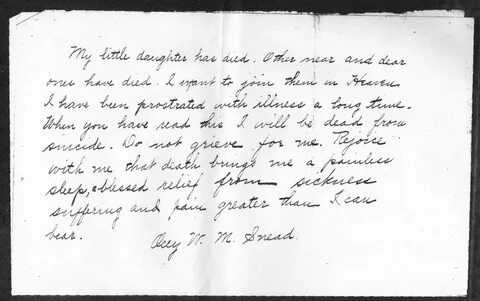 My little daughter has died. Other near and dear
ones have died. I want to join them in Heaven
I have been prostrated with illness a long time.
When you have read this I will be dead from
suicide. Do not grieve for me. Rejoice
with me that death brings me a painless
sleep, a blessed relief from sickness
suffering and pain greater than I can
bear.
Ocey W. M. Snead.